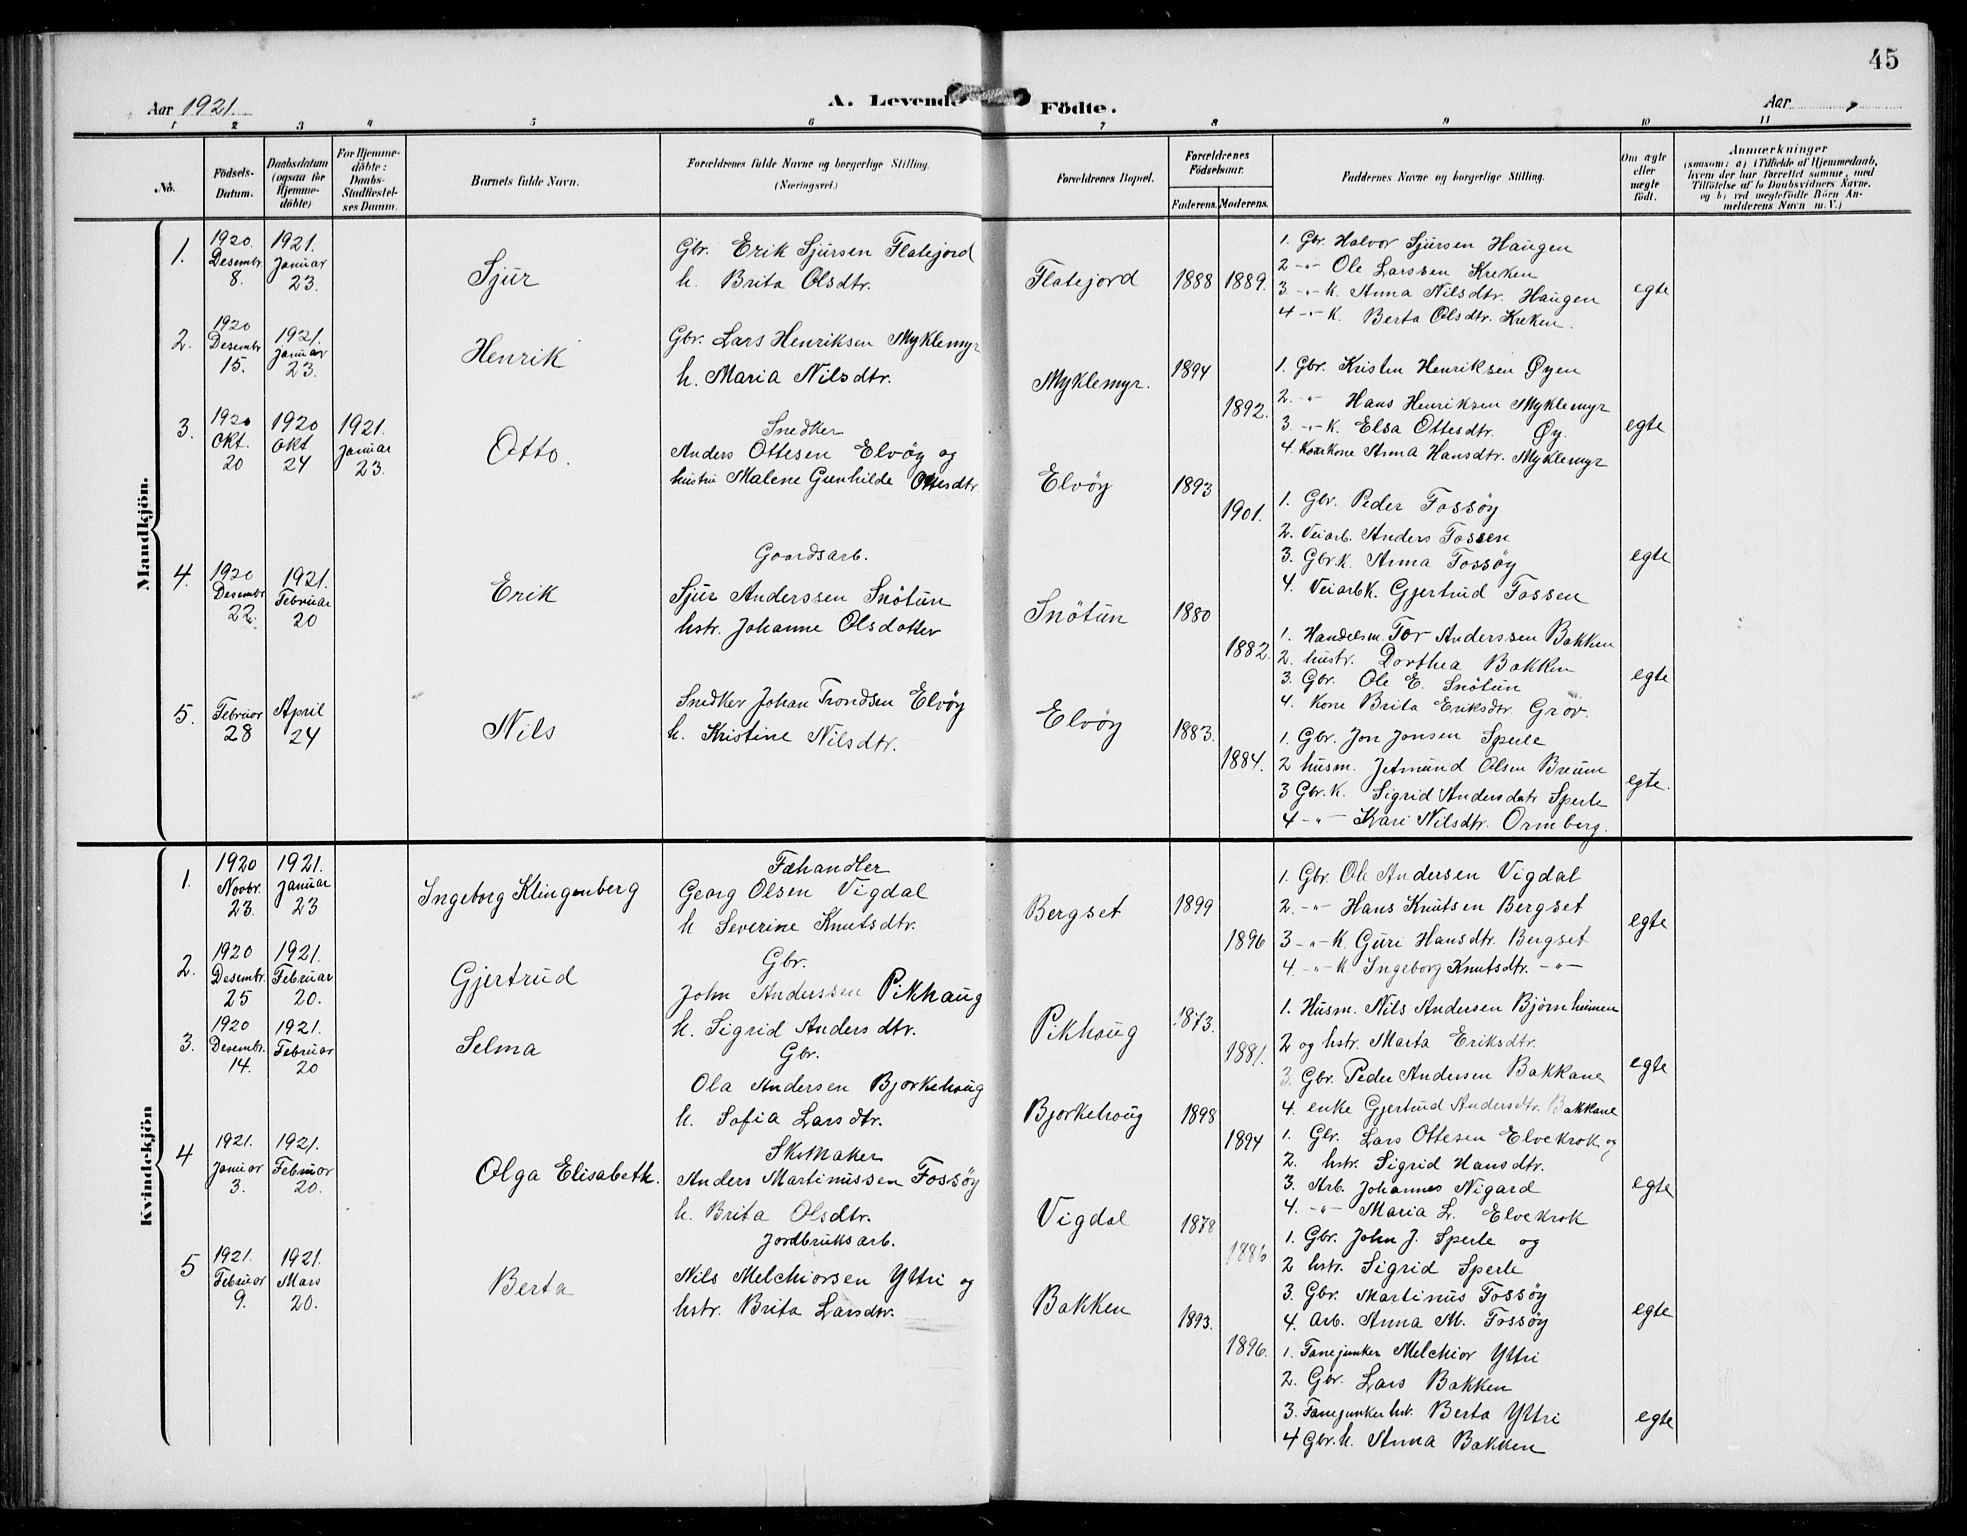 45
Aar 1921.
A. Levende Födte.
Aar
1 2 3 4 5 6 7 8 9 10 11
No.
Födsels-Datum.
Daabsdatum (ogsaa for Hjemme-döbte)
For Hjemme-döbte: Daabs-Stadfæstel-ses Datum.
Barnets fulde Navn.
Forældrenes fulde Navne og borgerlige Stilling.
(Næringsvei.)
Forældrenes Bopæl.
Forældrenes Födselsaar.
Faderens. Moderens.
Faddernes Navne og borgerlige Stilling.
Om ægte eller uægte födt.
Anmærkninger
(saasom: a) i Tilfælde af Hjemmedaab,
hvem der har forrettet samme, med
Tilföielse af to Daabsvidners Navne.
og b) ved uægtefödte Börn An-
melderens Navn m. V.)
Mandkjön.
1. 1920. Desembr. 8. 1921. Januar 23. Sjur
Gbr. Erik Sjursen Flatejord
h. Brita Olsdtr.
Flatejord 1888 1889.
1. Gbr. Halvor Sjursen Haugen
2 -"- Ole Larssen Kreken
3 -"- K. Anna Nilsdtr. Haugen
4 -"- K. Berta Olsdtr. Kreken.
egte
2. 1920 Desembr 15. 1921. Januar 23. Henrik
Gbr. Lars Henriksen Myklemyr
h. Maria Nilsdtr.
Myklemyr. 1894 1892.
1. Gbr. Kristen Henriksen Øyen
2. -"- Hans Henriksen Myklemyr
3. -"- K. Elsa Ottesdtr. Øy.
4. Kone Anna Hansdtr. Myklemyr
egte
3. 1920 Okt. 20 1920 Okt 24 1921. Januar 23. Otto.
Snedker
Anders Ottesen Elvöy og
hustru Malene Gunhilde Ottesdtr.
Elvöy 1893 1901.
1. Gbr. Peder Fossöy
2. Veiarb. Anders Fossen
3. Gbr.K. Anna Fossöy
4. Veiarb K. Gjertrud Fossen
egte
4. 1920 Desembr 22. 1921. Februar 20 Erik
Gaardsarb.
Sjur Anderssen Snötun
hstr. Johanne Olsdotter
Snötun 1880 1882.
1. Handelsm. Tor Anderssen Bakken
2. hustr. Dorthea Bakken
3. Gbr. Ole E. Snötun
4. Kone Brita Eriksdtr. Grov.
egte
5. Februar 28 April 24 Nils
Snedker Johan Trondsen Elvöy
h. Kristine Nilsdtr.
Elvöy 1883. 1884.
1. Gbr. Jon Jonsen Sperle
2 husm. Jetmund Olsen Breum
3 Gbr. K. Sigrid Andersdatr Sperle
4 -"- Kari Nilsdtr. Ormberg.
egte.
Kvindekjön
1. 1920 Novbr. 23. 1921. Januar 23 Ingeborg Klingenberg
Fæhandler
Georg Olsen Vigdal
h Severine Knutsdtr.
Bergset 1899 1896
1. Gbr. Ole Andersen Vigdal
2. -"- Hans Knutsen Bergset
3 -"- K. Guri Hansdtr. Bergset
4. -"- K Ingeborg Knutsdtr. -"-
egte
2. 1920 Desembr. 25 1921. Februar 20. Gjertrud
Gbr.
John Anderssen Pikhaug
h. Sigrid Andersdtr.
Pikhaug 1873. 1881.
1. Husm. Nils Andersen Bjørnheimen
2 og hstr. Marta Eriksdtr.
3. Gbr. Peder Andersen Bakkane
4. enke Gjertrud Andersdtr. Bakkane
egte
3. 1920 Desembr. 14. 1921. Februar 20 Selma
Gbr.
Ola Andersen Bjorkehaug
h. Sofia Larsdtr.
Bjorkehaug 1898 1894
1. Gbr. Lars Ottesen Elvekrok og
2. hstr. Sigrid Hansdtr.
3. Arb. Johannes Nigard
4. -"- Maria L. Elvekrok
egte
4 1921. Januar 3. 1921. Februar 20. Olga Elisabeth.
Skomaker
Anders Martinussen Fossöy
h. Brita Olsdtr.
Vigdal 1878 1886
1. Gbr. John J. Sperle og
2 hstr. Sigrid Sperle
3. Gbr. Martinus Fossöy
4. Arb. Anna M. Fossöy
egte
5 1921. Februar 9. 1921. Mars 20. Berta
Jordbruksarb.
Nils Melchiorsen Yttri og
hstr. Brita Larsdtr.
Bakken 1893. 1896.
1. Fanejunker Melchior Yttri
2. Gbr. Lars Bakken
3. Fanejunker hst. Berta Yttri
4 Gbr. h. Anna Bakken
egte